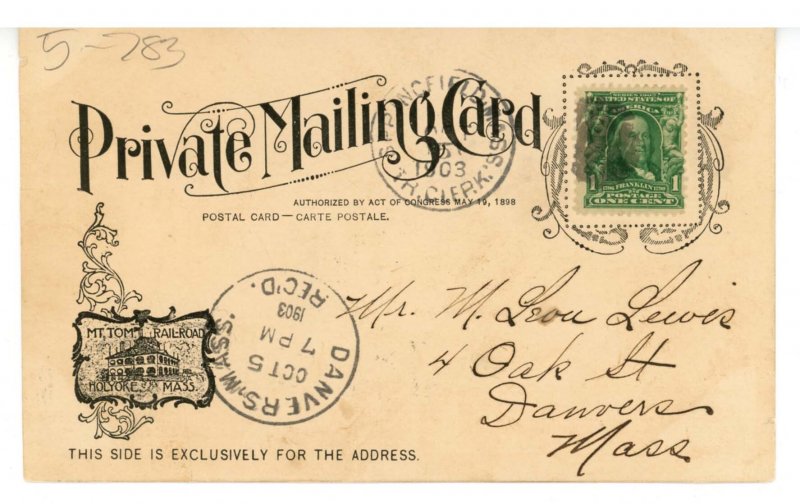 5-783
Private Mailing Card
SPRINGFIELD
1903
TR. CLERK.
AUTHORIZED BY ACT OF CONGRESS MAY 19, 1898
POSTAL CARD — CARTE POSTALE.
SERIES 1902
UNITED STATES OF
AMERICA
1706 FRANKLIN 1790
1 POSTAGE 1
ONE CENT
DANVERS, MASS.
OCT 5
7 PM
1903
REC'D.
Mr. M. Leon Lewis
4 Oak St
Danvers
Mass
MT. TOM RAILROAD
HOLYOKE MASS.
THIS SIDE IS EXCLUSIVELY FOR THE ADDRESS.